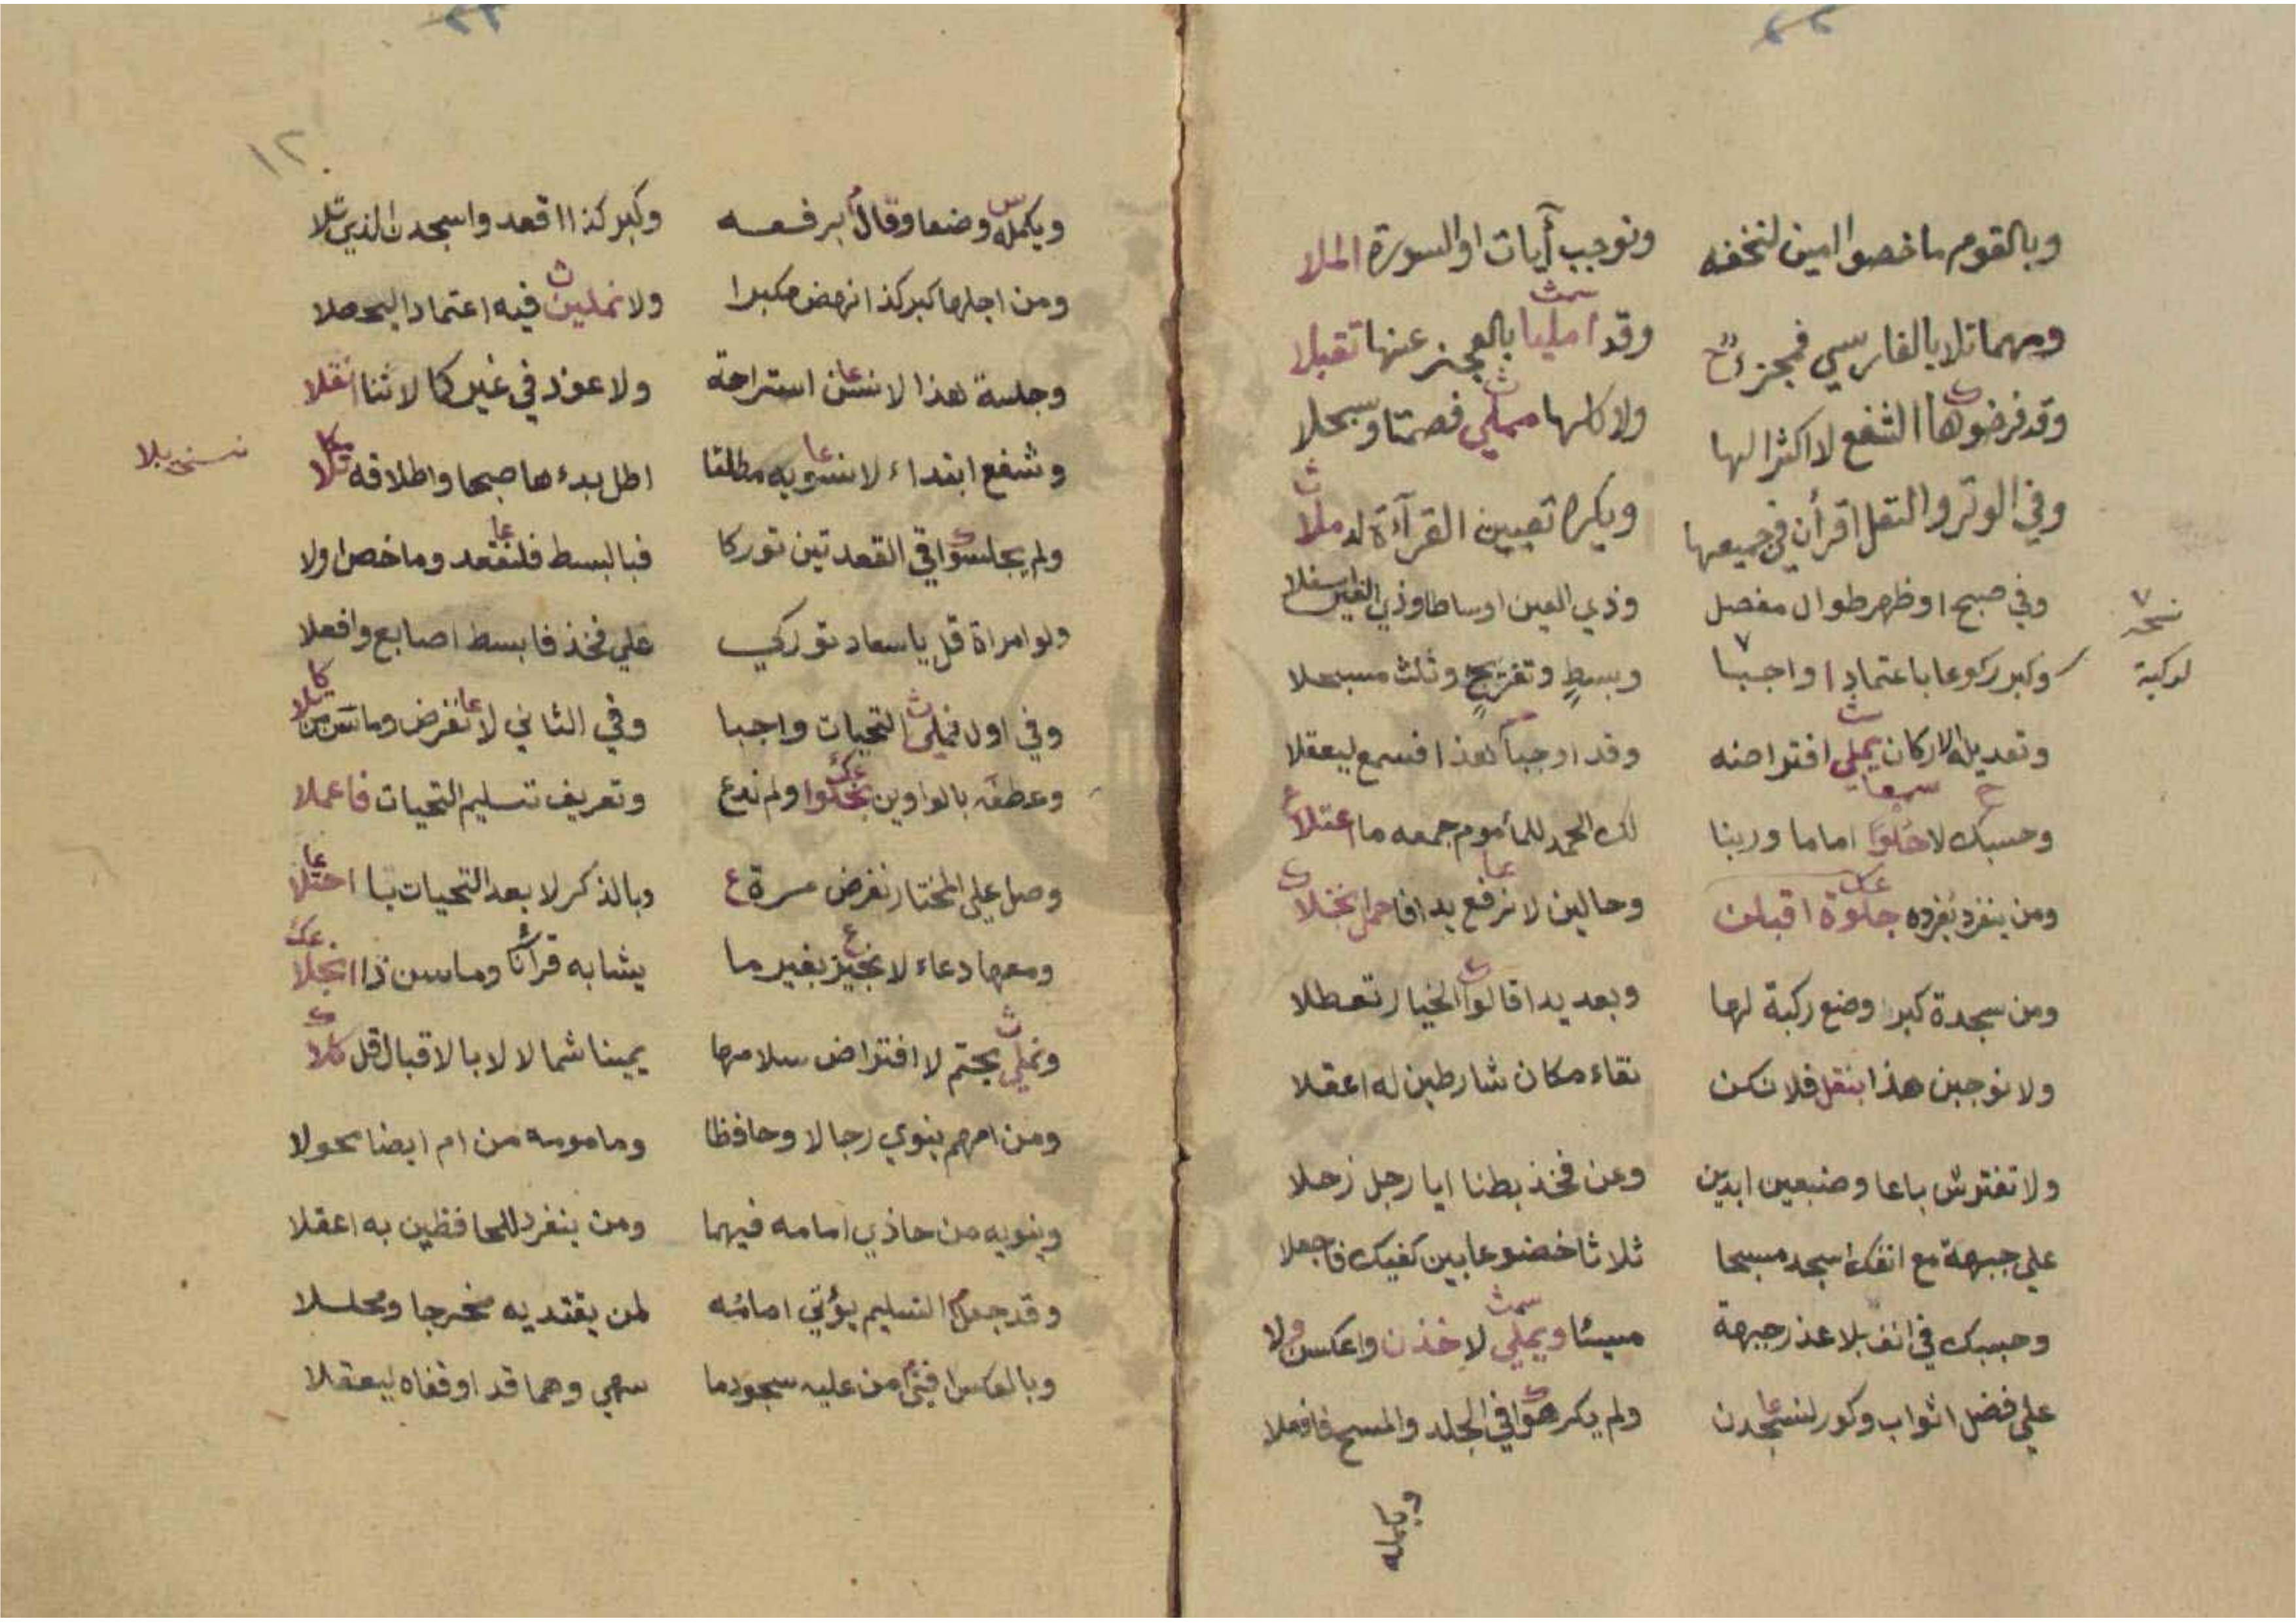 وبالقوم ما خصوا امين لنخفه ونوجب آيات او السورة الملا
ومهما تلا بالفارسي فمجز وقد امليا بالعجز عنها تقبلا
وقد فرضوها الشفع لا اكثرا لها ولا كلها مملي فصمتا وسبحلا
وفي الوتر والنفل اقرأن في جميعها ويكره تعيين القرآءة له ملا
وفي صبح او ظهر طوال مفصل وذي العين اوساطا وذي الغين اسفلا
نسخة
لركبة
وكبر ركوعا باعتماد واجبا وبسط وتفريج وثلث مسبحلا
وتعديله الاركان يملي افتراضه وقد اوجبا هذا فسمع ليعقلا
وحسبك لا حلوا اماما وربنا لك الحمد للمأموم جمعه ما اعتلا
ومن ينفرد يفرده جلوة اقبلن وحالين لا نرفع يدا فاحمل نختلا
ومن سجدة كبر وضع ركبة لها وبعد يدا قالوا الخيار تعطلا
ولا نوجبن هذا بنقل فلا تكن نقاء مكان شارطين له اعقلا
ولا تفترش باعا وضبعين ابدين وعن فخذ بطنا ايا رجل زحلا
على جبهة مع انفك اسجد مسبحا ثلاثا خضوعا بين كفيك فاجعلا
وحسبك في انف بلا عذر جبهة مسيئا ويملي لا خذن واعكس ولا
على فضل اثواب وكور لنسجدن ولم يكرهوا في الجلد والمسح فافعلا
ويكمله
١٢
ويكمله وضعا وقال برفعه وكبر كذا اقعد واسجدن الذي تلا
ومن اجلها كبر كذا انهض مكبرا ولا نملين فيه اعتمادا ليحصلا
وجلسة هذا لا نسن استراحة ولا عوذ في غير كالا ثنا انقلا
وشفع ابتداء لا نسويه مطلقا اطل بدءها صبحا واطلاقه تلا
نسخ بلا
ولم يجلسوا في القعدتين توركا فبالبسط فلنقعد وما خص اولا
ولو امراة قل يا سعاد توركي على فخذ فابسط اصابع وافعلا
وفي اول فملي التحيات واجبا وفي الثاني لا نفرض وما
وعطفه بالواوين نحكوا ولم ندع وتعريف تسليم التحيات فاعملا
وصل على المختار نفرض مرة وبالذكر لا بعد التحيات اختلا
ومعها دعاء لا نجيز بغير ما يشابه قرآنا وما سن ذا انجلا
ونملي بحتم لا افتراض سلامها يمينا شمالا لا بالاقبال قل كلا
ومن امهم ينوي رجالا وحافظا ومامومه من ام ايضا تحولا
وينويه من حاذي امامه فيهما ومن ينفرد للحافظين به اعقلا
وقد جعل التسليم يؤتي امامه لمن يقتديه مخرجا ومحللا
وبالعكس افتى من عليه سجود ما سهي وهما قد اوقفاه ليعقلا